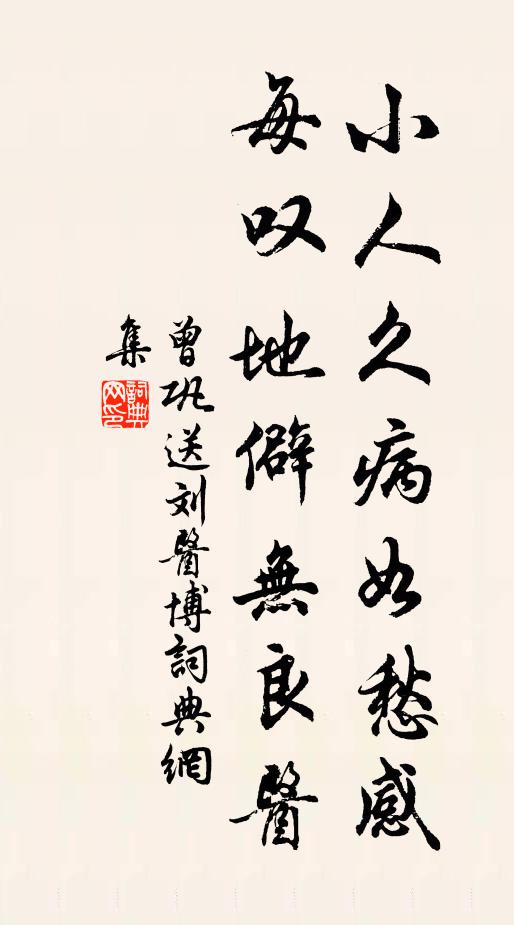 小人久病如愁感
每叹地僻無良醫
曾巩送刘醫博詞典網
集
詞典
网印